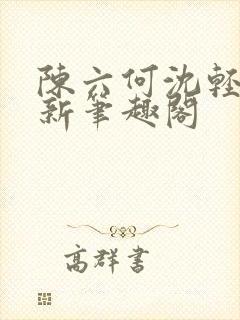 陳六何沈輕
新筆趣閣
高群書